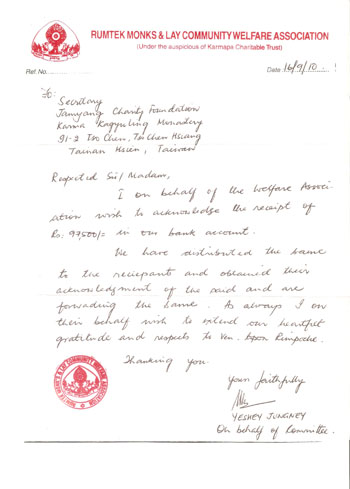 RUMTEK MONKS & LAY COMMUNITY WELFARE ASSOCIATION
(Under the auspicious of Karmapa Charitable Trust)
Ref. No.
Date 16/9/10
To:
Secretary
Jamyang Charity Foundation
Karma Kagyuling Monastery
91-2 Tso Chen, Tso Chen Hsiang
Tainan Hsien, Taiwan
Respected Sir/Madam,
I on behalf of the Welfare Associ-
ation wish to acknowledge the receipt of
Rs: 97,500/= in our bank account.
We have distributed the same
to the reciepants and obtained their
acknowledgment of the said and are
forwading the same. As always I on
their behalf wish to extend our heartfelt
gratitude and respects to Ven. Rimpoche.
Thanking you.
Yours faithfully
YESHEY JUNGNEY
On behalf of Committee.
RUMTEK MONKS & LAY COMMUNITY WELFARE ASSOCIATION